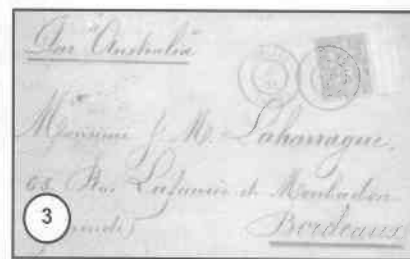 Par "Australia"
Monsieur J. M. Laharrague,
68 Rue Lafaurie de Monbadon
Bordeaux
3